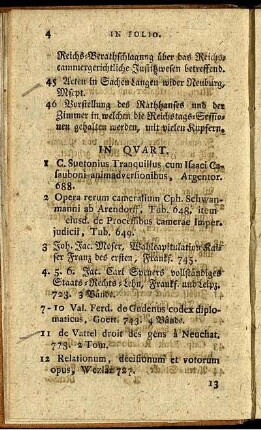 4 IN FOLIO.
Reichs-Berathschlagung über das Reichs-
cammergerichtliche Justitzwesen betreffend.
45 Acten in Sachen Langen wider Neuburg,
Mscpt.
46 Vorstellung des Rathhauses und der
Zimmer in welchen die Reichstags-Sessio-
nen gehalten werden, mit vielen Kupfern.
IN QVART.
1 C. Suetonius Tranquillus cum Isaaci Ca-
sauboni animadversionibus, Argentor.
688.
2 Opera rerum cameralium Cph. Schwan-
manni ab Arendorff, Tub. 648, item
ejusd. de Processibus camerae Imper.
judicii, Tub. 649.
3 Joh. Jac. Moser, Wahlcapitulation Kai-
ser Franz des ersten, Frankf. 745.
4. 5. 6. Jac. Carl Speners vollständiges
Staats-Rechts-Lehn, Frankf. und Leipz.
723. 3 Bände.
7-10 Val. Ferd. de Gudenus codex diplo-
maticus, Goett. 743. 4 Bände.
11 de Vattel droit des gens à Neuchat.
773. 2 Tom.
12 Relationum, decisionum et votorum
opus, Wezlar 727.
13